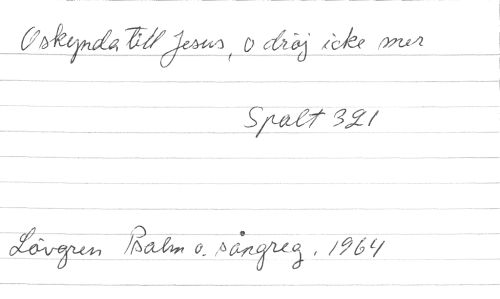 O skynda till Jesus, o dröj icke mer
Spalt 321
Lövgren Psalm o. sångreg. 1964